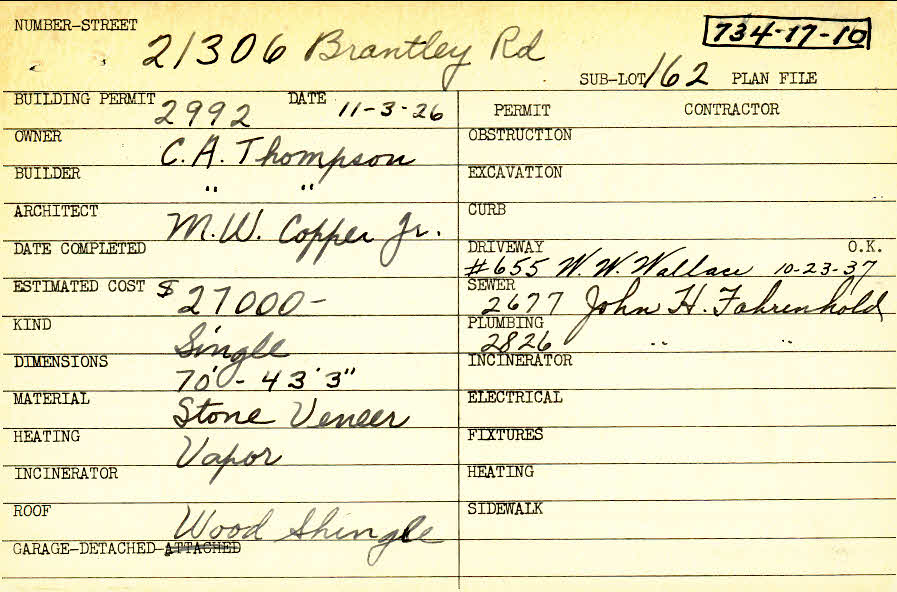 NUMBER-STREET 21306 Brantley Rd 734-17-10
SUB-LOT 162 PLAN FILE
BUILDING PERMIT 2992 DATE 11-3-26
OWNER C. A. Thompson
BUILDER " "
ARCHITECT M. W. Copper Jr.
DATE COMPLETED
ESTIMATED COST $ 27000-
KIND Single
DIMENSIONS 70' - 43'3"
MATERIAL Stone Veneer
HEATING Vapor
INCINERATOR
ROOF Wood Shingle
GARAGE-DETACHED-ATTACHED
PERMIT CONTRACTOR
OBSTRUCTION
EXCAVATION
CURB
DRIVEWAY O.K.
#655 W. W. Wallace 10-23-37
SEWER 2677 John H. Fahrenhold
PLUMBING 2826 " "
INCINERATOR
ELECTRICAL
FIXTURES
HEATING
SIDEWALK